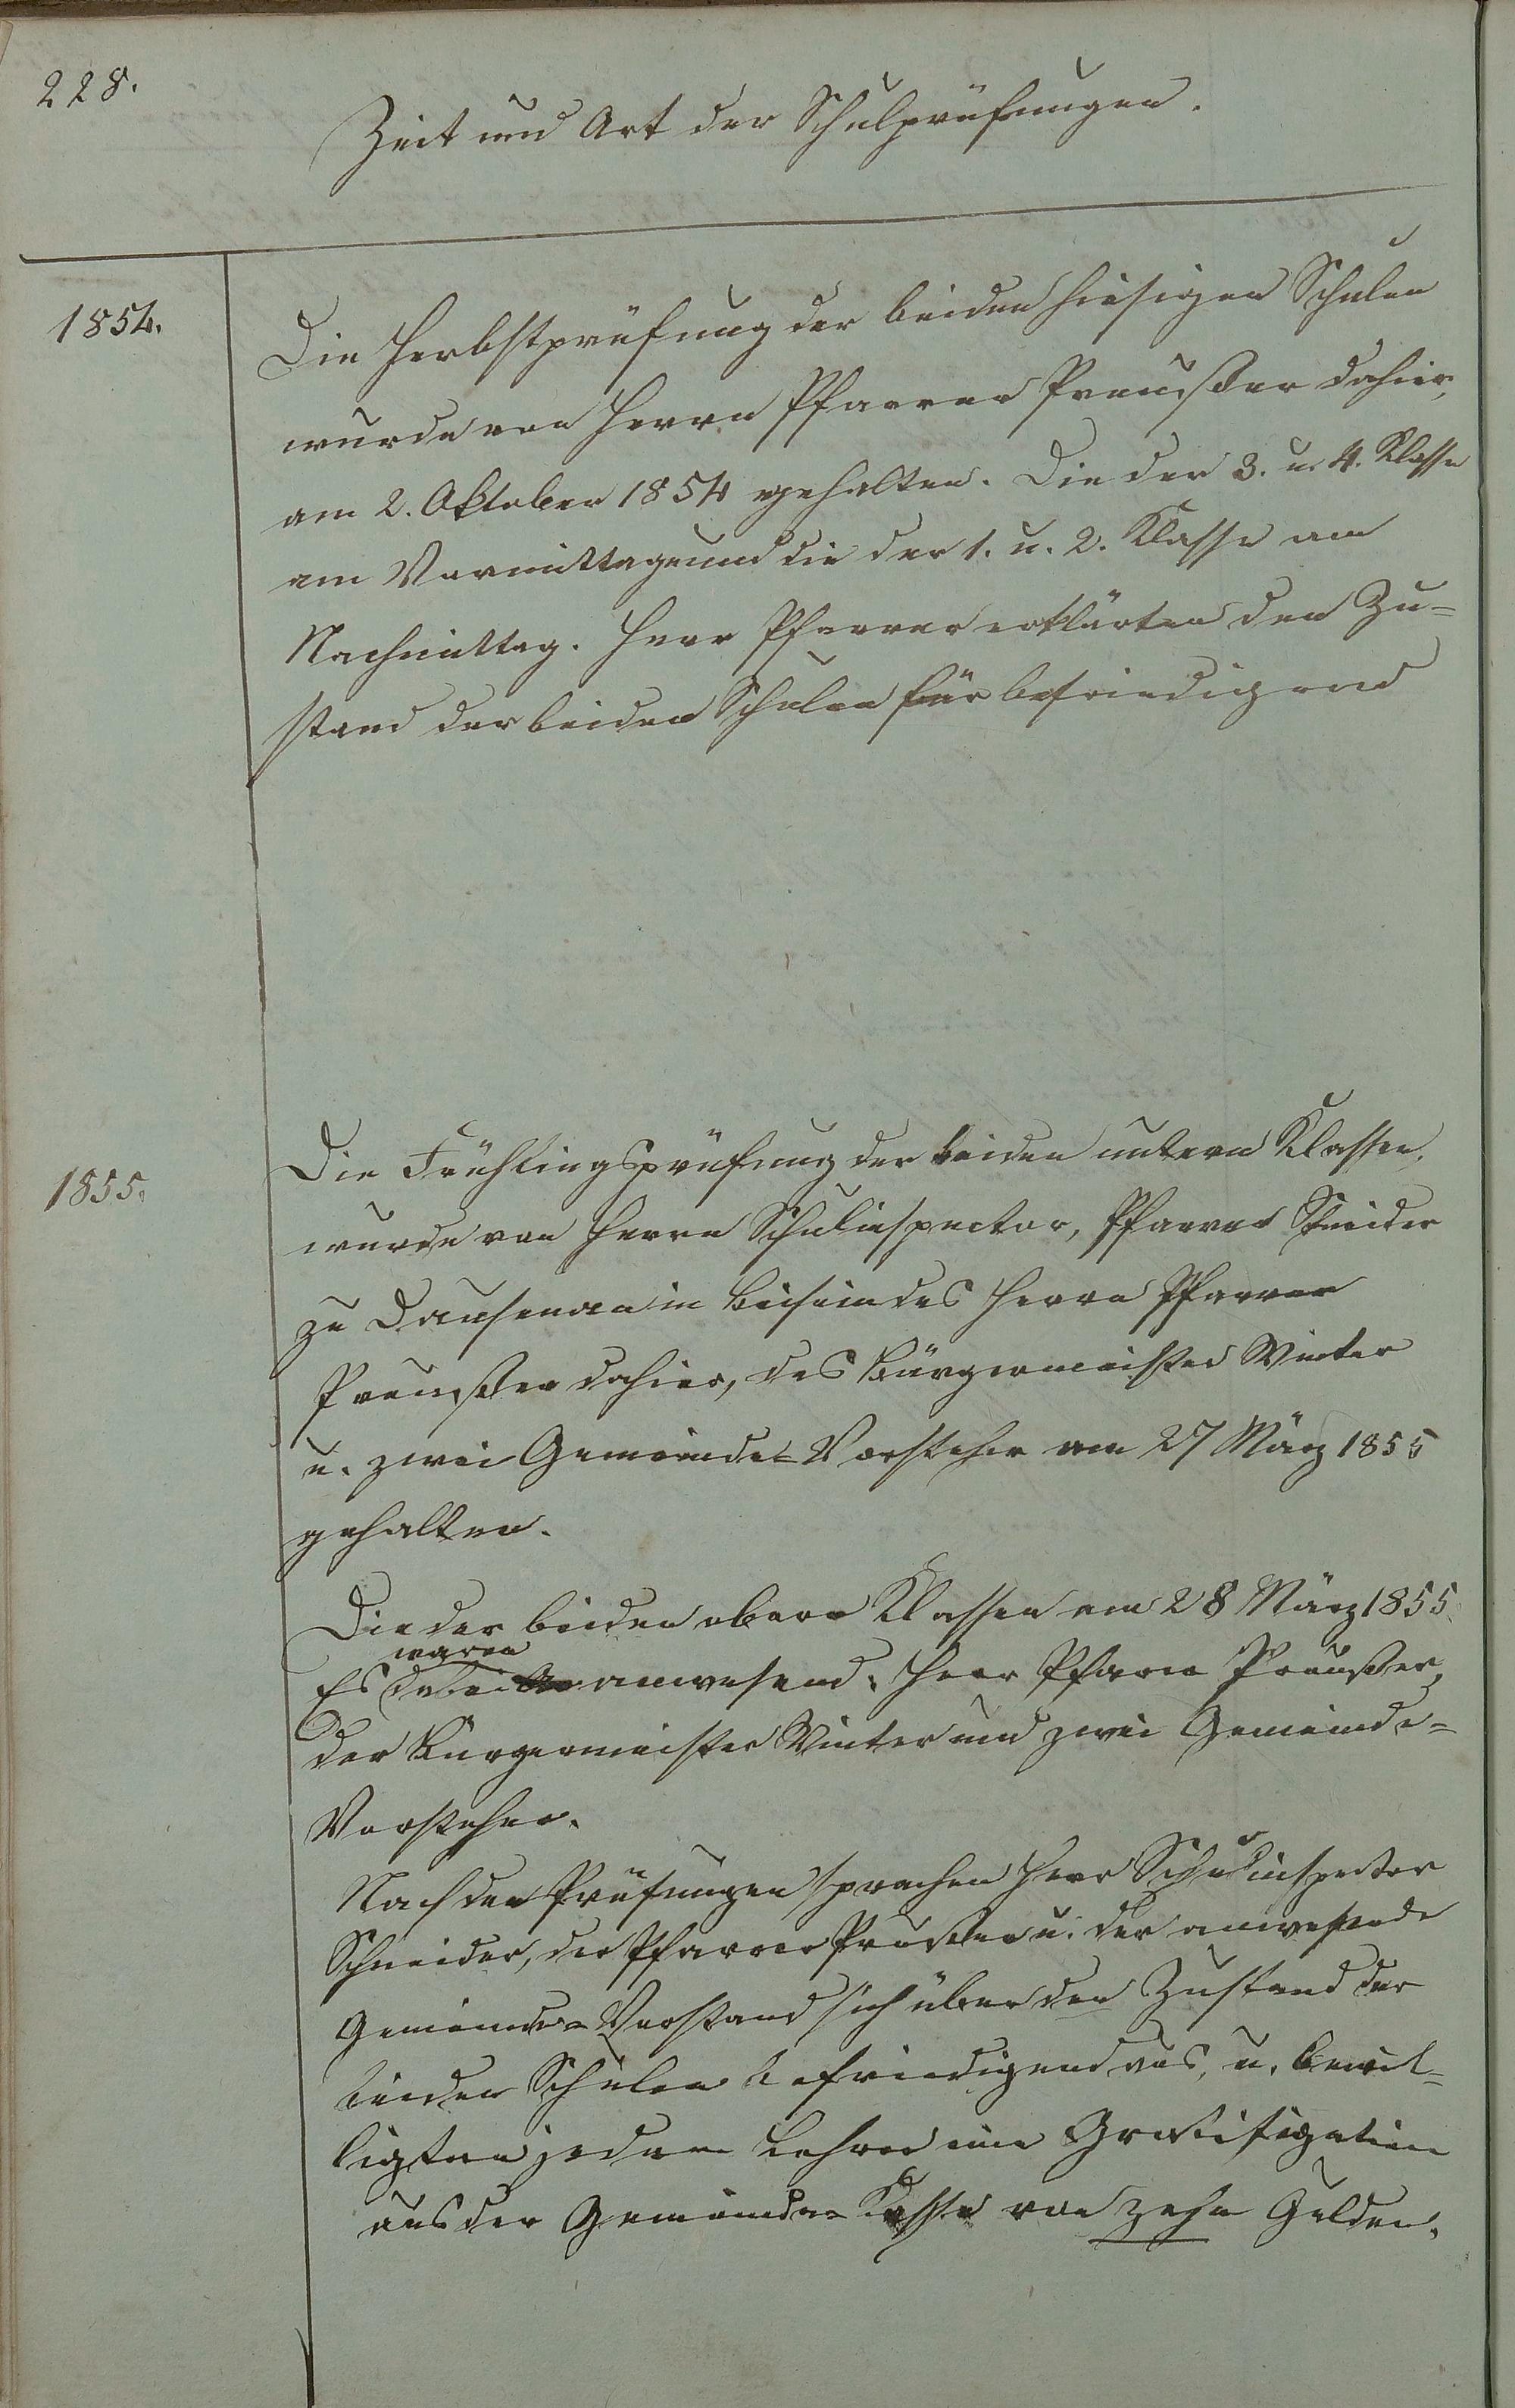 228.
Zeit und Art der Schulprüfungen.
1854.
Die Herbstprüfung der beiden hiesigen Schulen
wurde von Herrn Pfarrer Preußer dahier,
am 2. Oktober 1854 gehalten. Die der 3. u. 4. Klasse
am Vormittag und die der 1. u. 2. Klasse am
Nachmittag. Herr Pfarrer erklärten den Zu=
stand der beiden Schulen für befriedigend
1855.
Die Frühlingsprüfung der beiden untern Klassen,
wurde von Herrn Schulinspector, Pfarrer Schneider
zu Dausenau in Beisein des Herrn Pfarrer
Preußer dahier, des Bürgermeister Winter
u. zwei Gemeinde=Vorsteher am 27 März 1855
gehalten.
Die der beiden obern Klassen am 28 März 1855.
waren
Es dabei anwesend: Herr Pfarrer Preußer,
der Bürgermeister Winter und zwei Gemeinde=
Vorsteher.
Nach den Prüfungen sprachen Herr Schulinspector
Schneider, der Pfarrer Preußer u. der anwesende
Gemeinde=Vorstand sich über den Zustand der
beiden Schulen befriedigend aus, u. bewil=
ligten jedem Lehrer eine Gratifigation
aus der Gemeinde=Kasse von zehn Gulden.